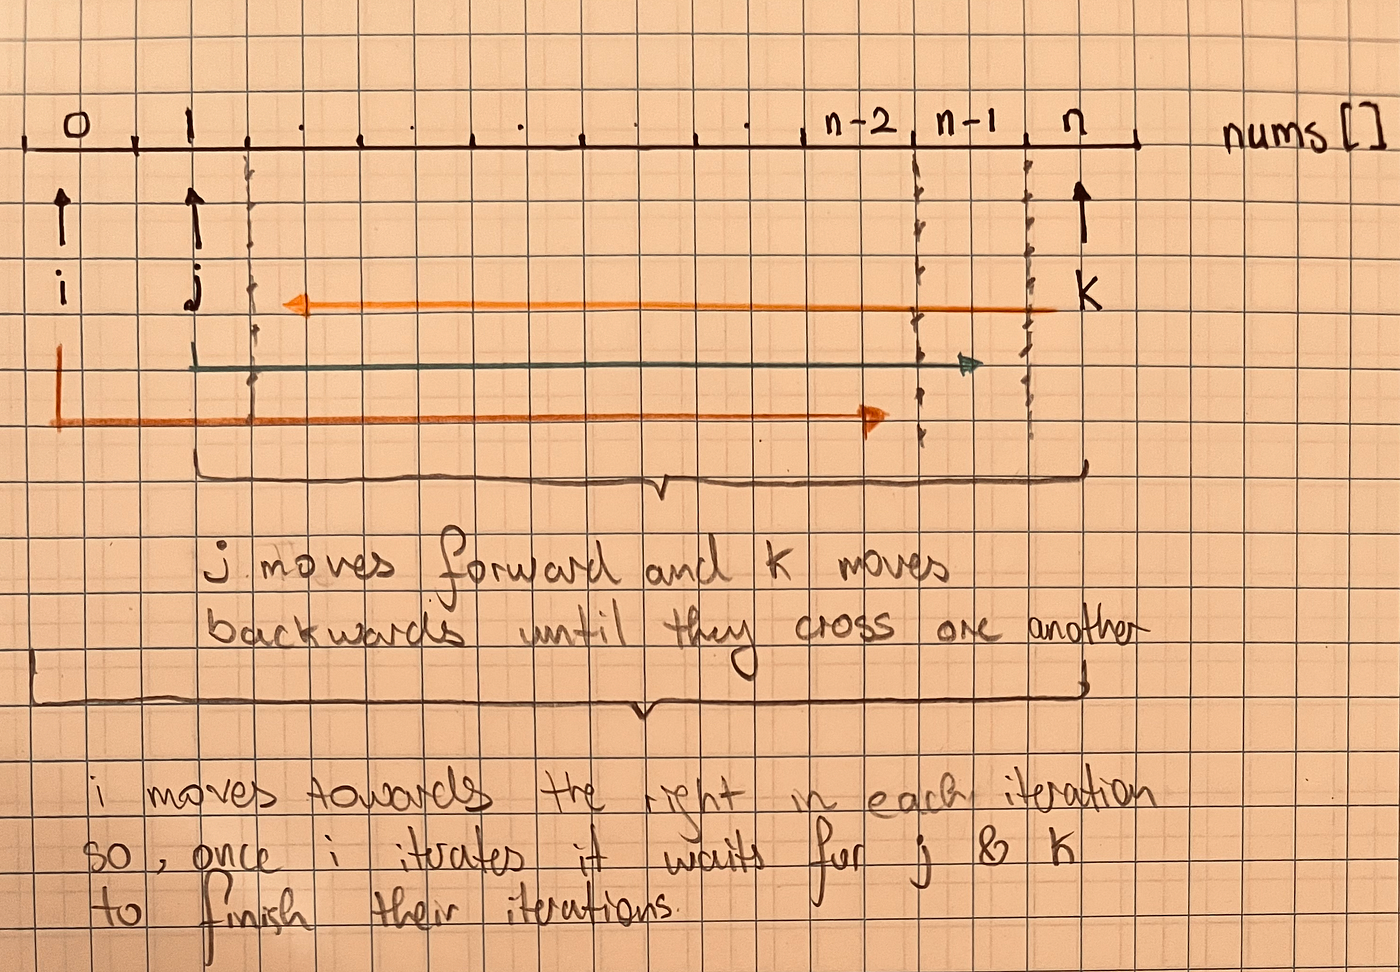 0 1 . . . . . n-2 n-1 n nums []
i j k
j moves forward and k moves
backwards until they cross one another
i moves towards the right in each iteration
so, once i iterates it waits for j & k
to finish their iterations.